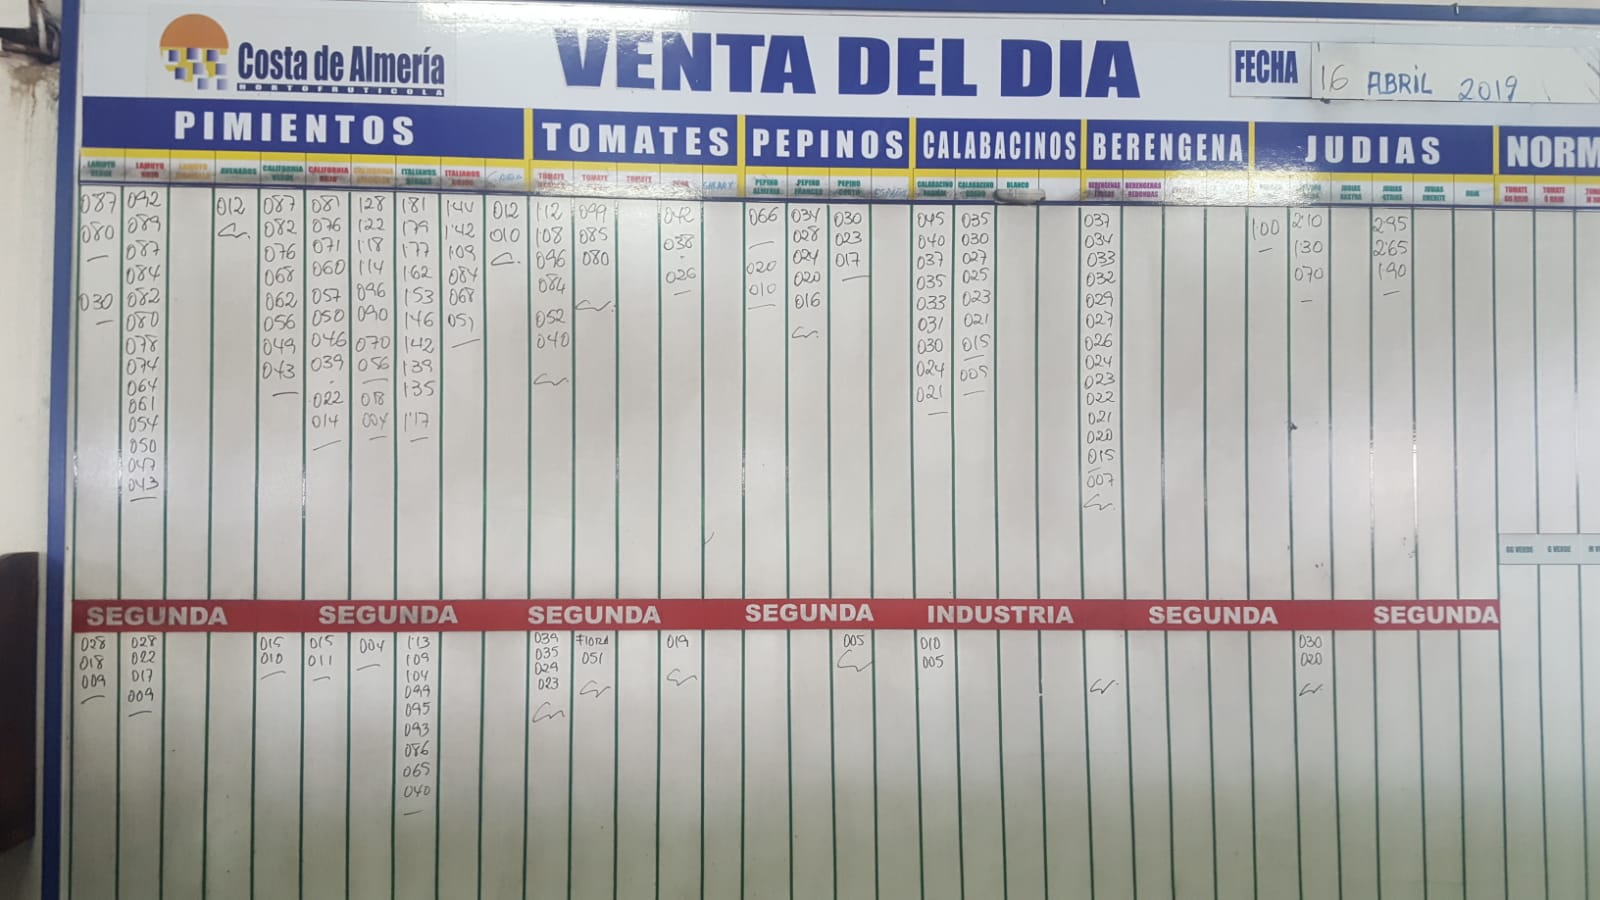 Costa de Almería
HORTOFRUTICOLA
VENTA DEL DIA
FECHA 16 ABRIL 2019
PIMIENTOS TOMATES PEPINOS CALABACINOS BERENGENA JUDIAS NORM
LAMUYO VERDE LAMUYO ROJO ASURADOS CALIFORNIA VERDE CALIFORNIA ROJO CALIFORNIA ITALIANOS VERDES ITALIANOS ROJOS TOMATE TOMATE TOMATE PERA PEPINO ALMERIA PEPINO FRANCES PEPINO CORTO CALABACINO CALABACINO GORDO BLANCO BERENGENAS LARGAS BERENGENAS REDONDAS JUDIAS RASTRA JUDIAS STRIKE JUDIAS EMERITE TOMATE GG ROJO TOMATE G ROJO TOMATE
087 092 012 087 081 128 181 144 012 112 099 042 066 034 030 045 035 037 100 210 295
080 089 082 076 122 179 142 010 108 085 038 028 023 040 030 034 130 265
087 076 071 118 177 109 096 080 026 020 024 017 037 027 033 070 190
084 068 060 114 162 084 084 010 020 035 025 032
030 082 062 057 096 153 068 052 016 033 023 029
080 056 050 090 146 051 040 031 021 027
078 049 046 070 142 030 015 026
074 043 039 056 139 024 005 024
064 022 018 135 021 023
061 014 004 117 022
054 021
050 020
047 015
043 007
GG VERDE G VERDE M VE
SEGUNDA SEGUNDA SEGUNDA SEGUNDA INDUSTRIA SEGUNDA SEGUNDA
028 028 015 015 004 113 039 FLORA 019 005 010 030
018 022 010 011 109 035 051 005 020
009 017 104 029
009 099 023
095
093
086
065
040